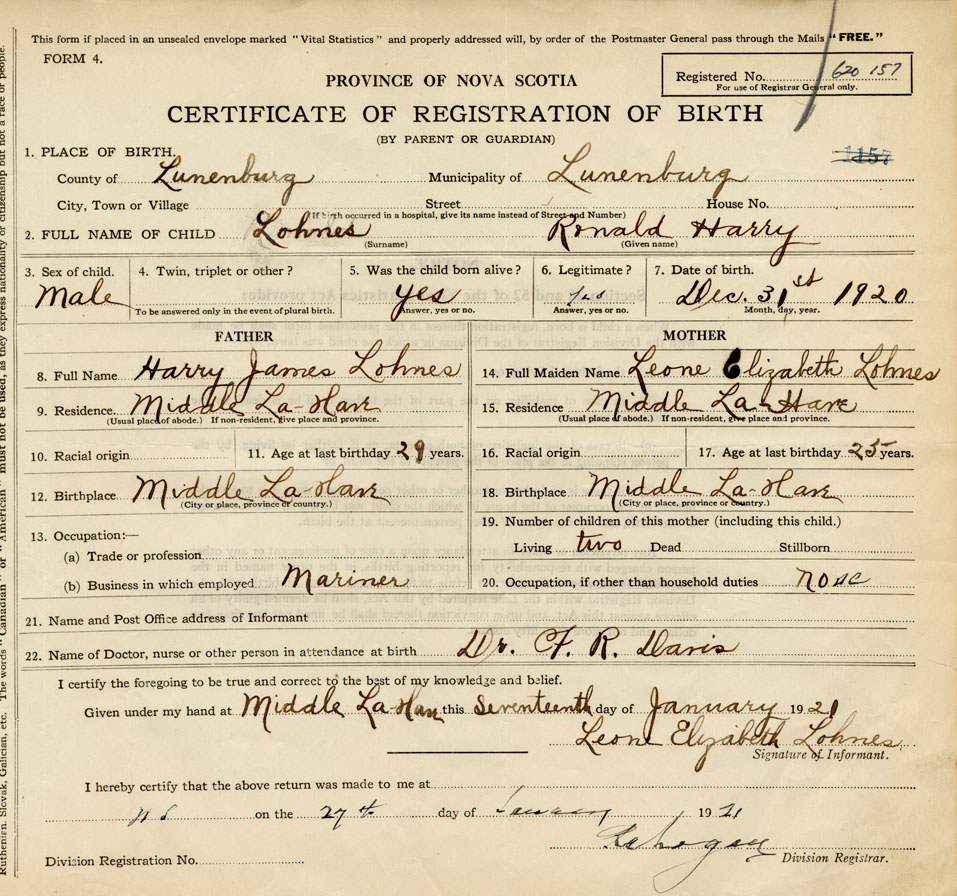 This form if placed in an unsealed envelope marked "Vital Statistics" and properly addressed will, by order of the Postmaster General pass through the Mails "FREE."
FORM 4.
Registered No. 620 157
For use of Registrar General only.
PROVINCE OF NOVA SCOTIA
CERTIFICATE OF REGISTRATION OF BIRTH
(BY PARENT OR GUARDIAN)
1157
1. PLACE OF BIRTH.
County of Lunenburg Municipality of Lunenburg
City, Town or Village Street House No.
(If birth occurred in a hospital, give its name instead of Street and Number)
2. FULL NAME OF CHILD Lohnes Ronald Harry
(Surname) (Given name)
3. Sex of child. 4. Twin, triplet or other? 5. Was the child born alive? 6. Legitimate? 7. Date of birth.
Male yes Yes Dec. 31st 1920
To be answered only in the event of plural birth. Answer, yes or no. Answer, yes or no. Month, day, year.
FATHER MOTHER
8. Full Name Harry James Lohnes 14. Full Maiden Name Leone Elizabeth Lohnes
9. Residence Middle La-Have 15. Residence Middle La-Have
(Usual place of abode.) If non-resident, give place and province. (Usual place of abode.) If non-resident, give place and province.
10. Racial origin 11. Age at last birthday 29 years. 16. Racial origin 17. Age at last birthday 25 years.
12. Birthplace Middle La-Have 18. Birthplace Middle La-Have
(City or place, province or country.) (City or place, province or country.)
13. Occupation:— 19. Number of children of this mother (including this child.)
(a) Trade or profession Living two Dead Stillborn
(b) Business in which employed Mariner 20. Occupation, if other than household duties none
21. Name and Post Office address of Informant
22. Name of Doctor, nurse or other person in attendance at birth Dr. F. R. Davis
I certify the foregoing to be true and correct to the best of my knowledge and belief.
Given under my hand at Middle La-Have this Seventeenth day of January 1921
Leone Elizabeth Lohnes
Signature of Informant.
I hereby certify that the above return was made to me at
on the 27th day of January 1921
Division Registration No. Division Registrar.
Ruthenian, Slovak, Galician, etc. The words "Canadian" or "American" must not be used, as they express nationality or citizenship but not a race or people.